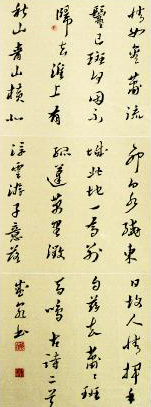 情如舊蕭疏
鬢已斑何因不
歸去淮上有
秋山青山橫北
郭白水繞東
城此地一為別
孤蓬萬里徵
浮雲游子意落
日故人情揮手
自茲去蕭蕭班
馬鳴古詩二首
書